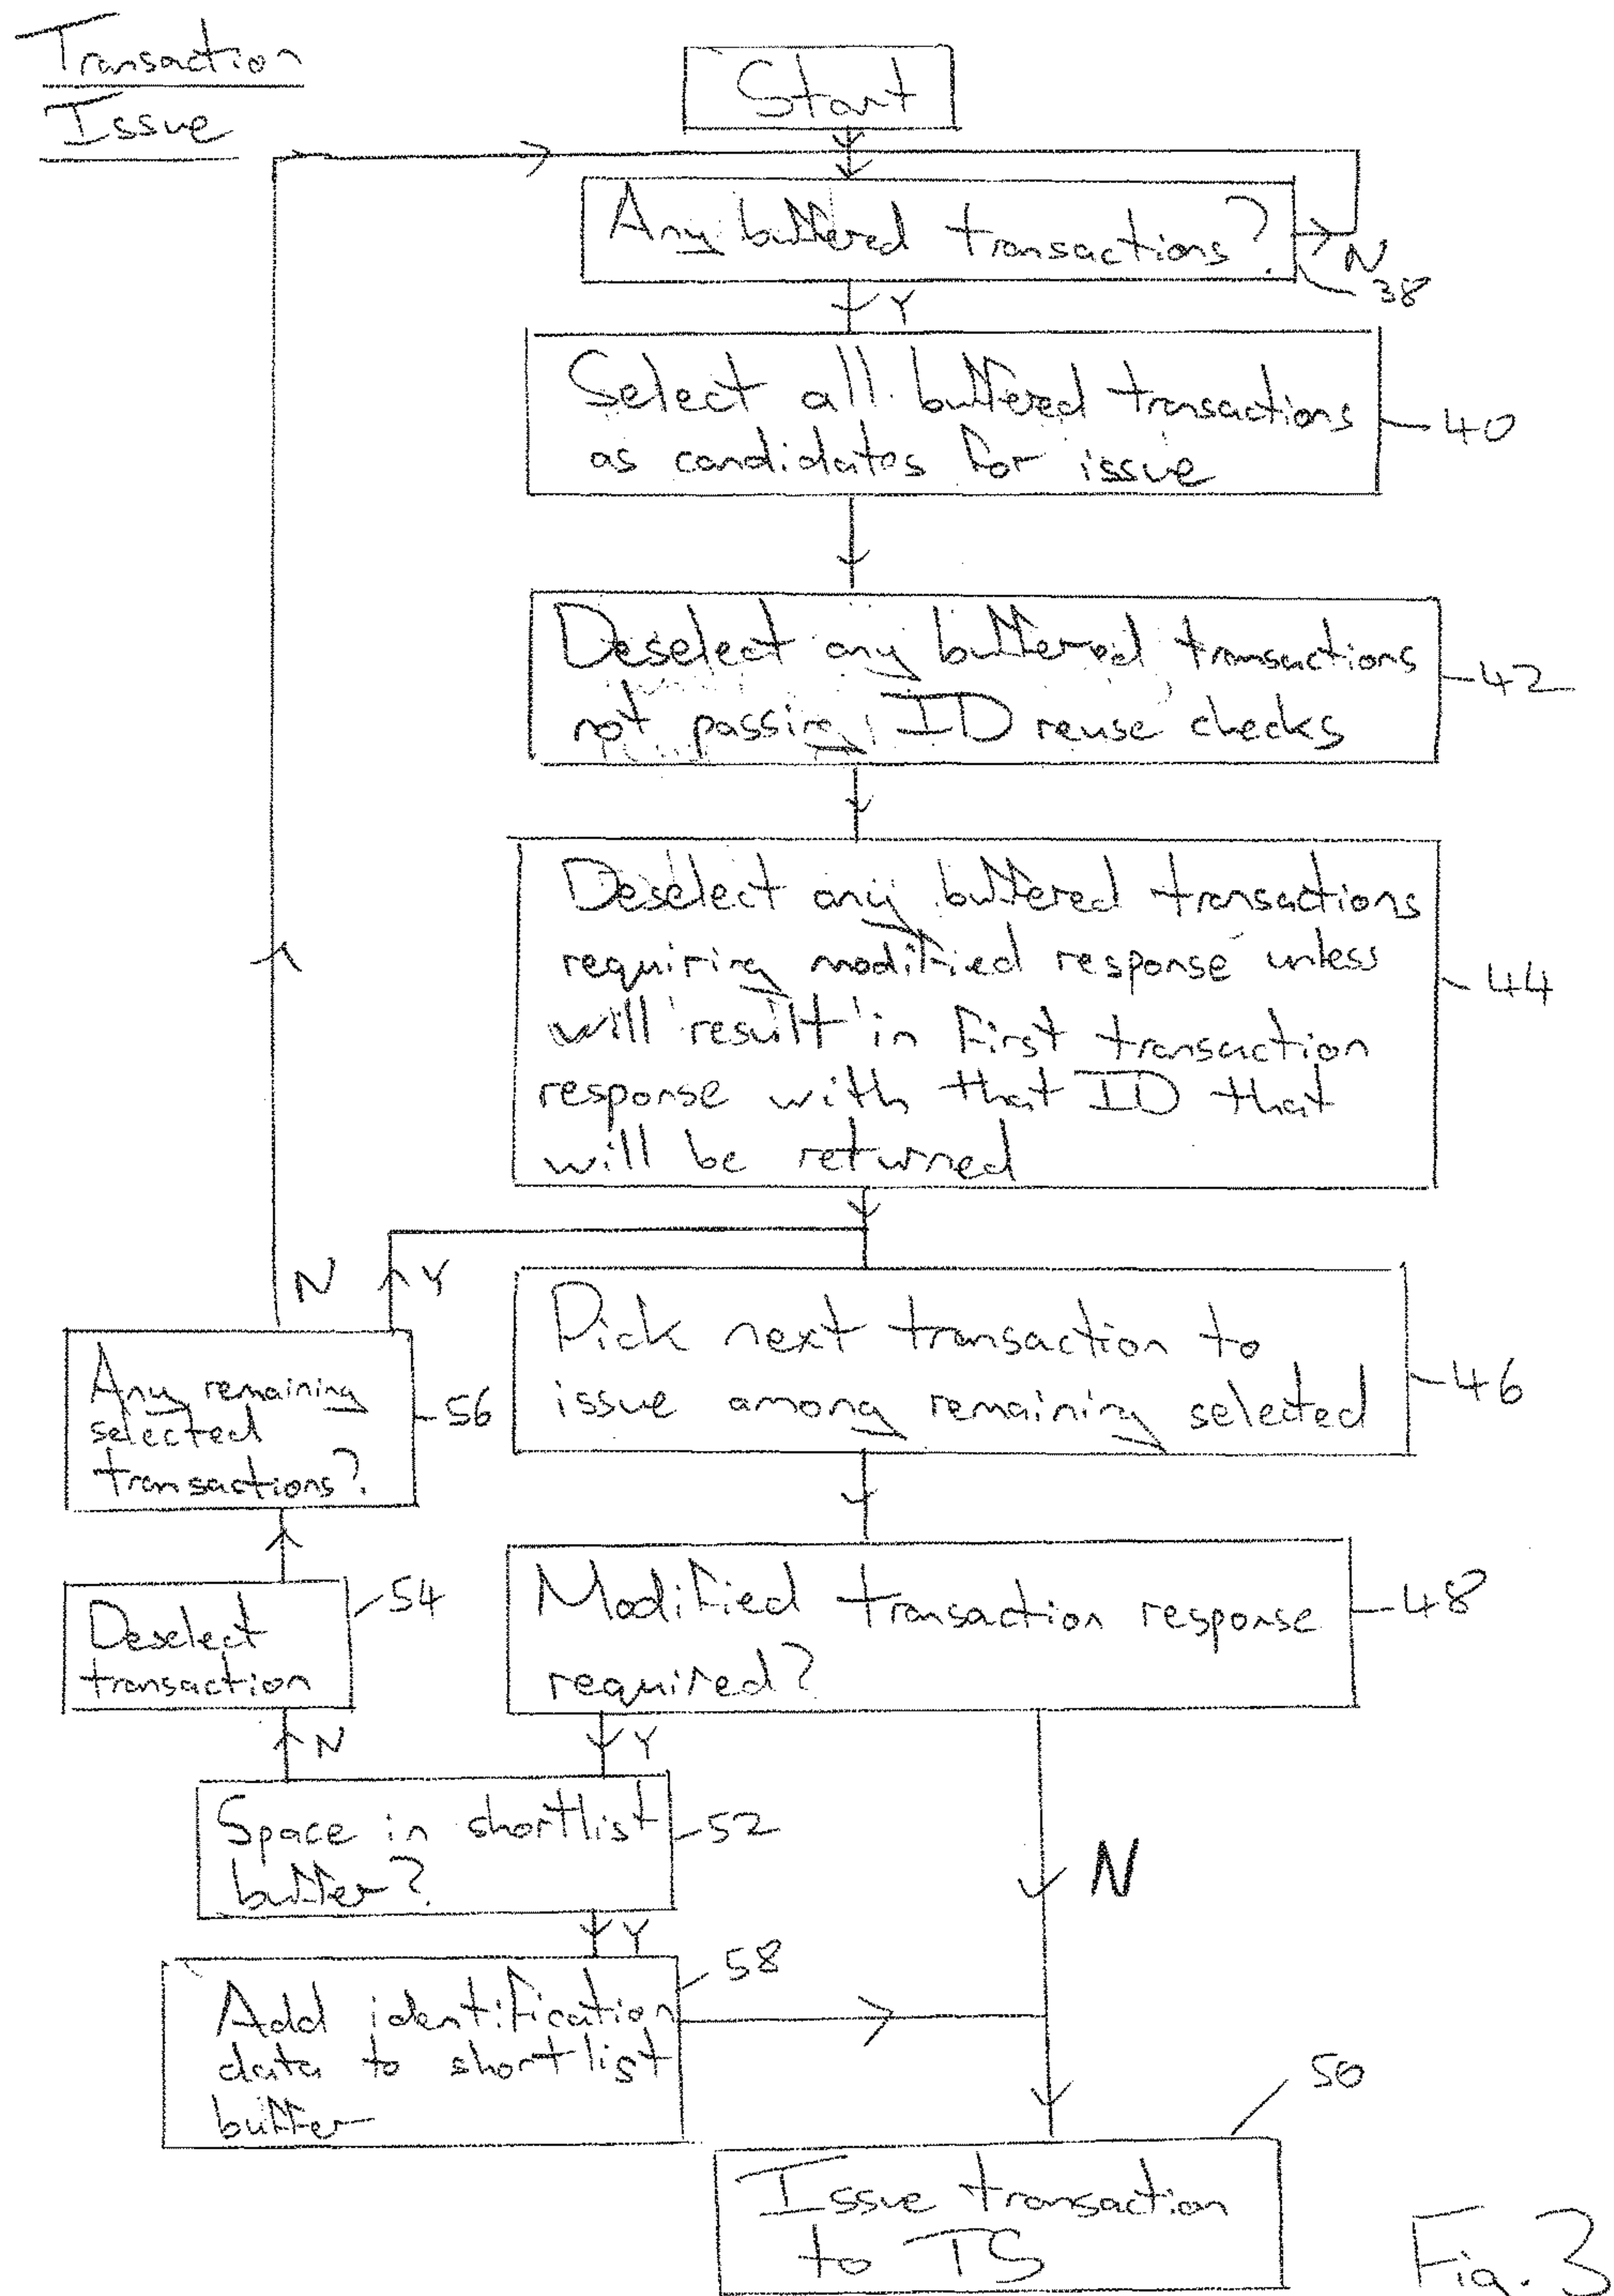 Transaction
Issue
Start
Any buffered transactions?
N
38
Y
Select all buffered transactions
as candidates for issue
40
Deselect any buffered transactions
not passing ID reuse checks
42
Deselect any buffered transactions
requiring modified response unless
will result in first transaction
response with that ID that
will be returned
44
N
Y
Pick next transaction to
issue among remaining selected
46
Any remaining
selected
transactions?
56
Modified transaction response
required?
48
Deselect
transaction
54
N
Y
Space in shortlist
buffer?
52
N
Y
Add identification
data to shortlist
buffer
58
50
Issue transaction
to TS
Fig. 3